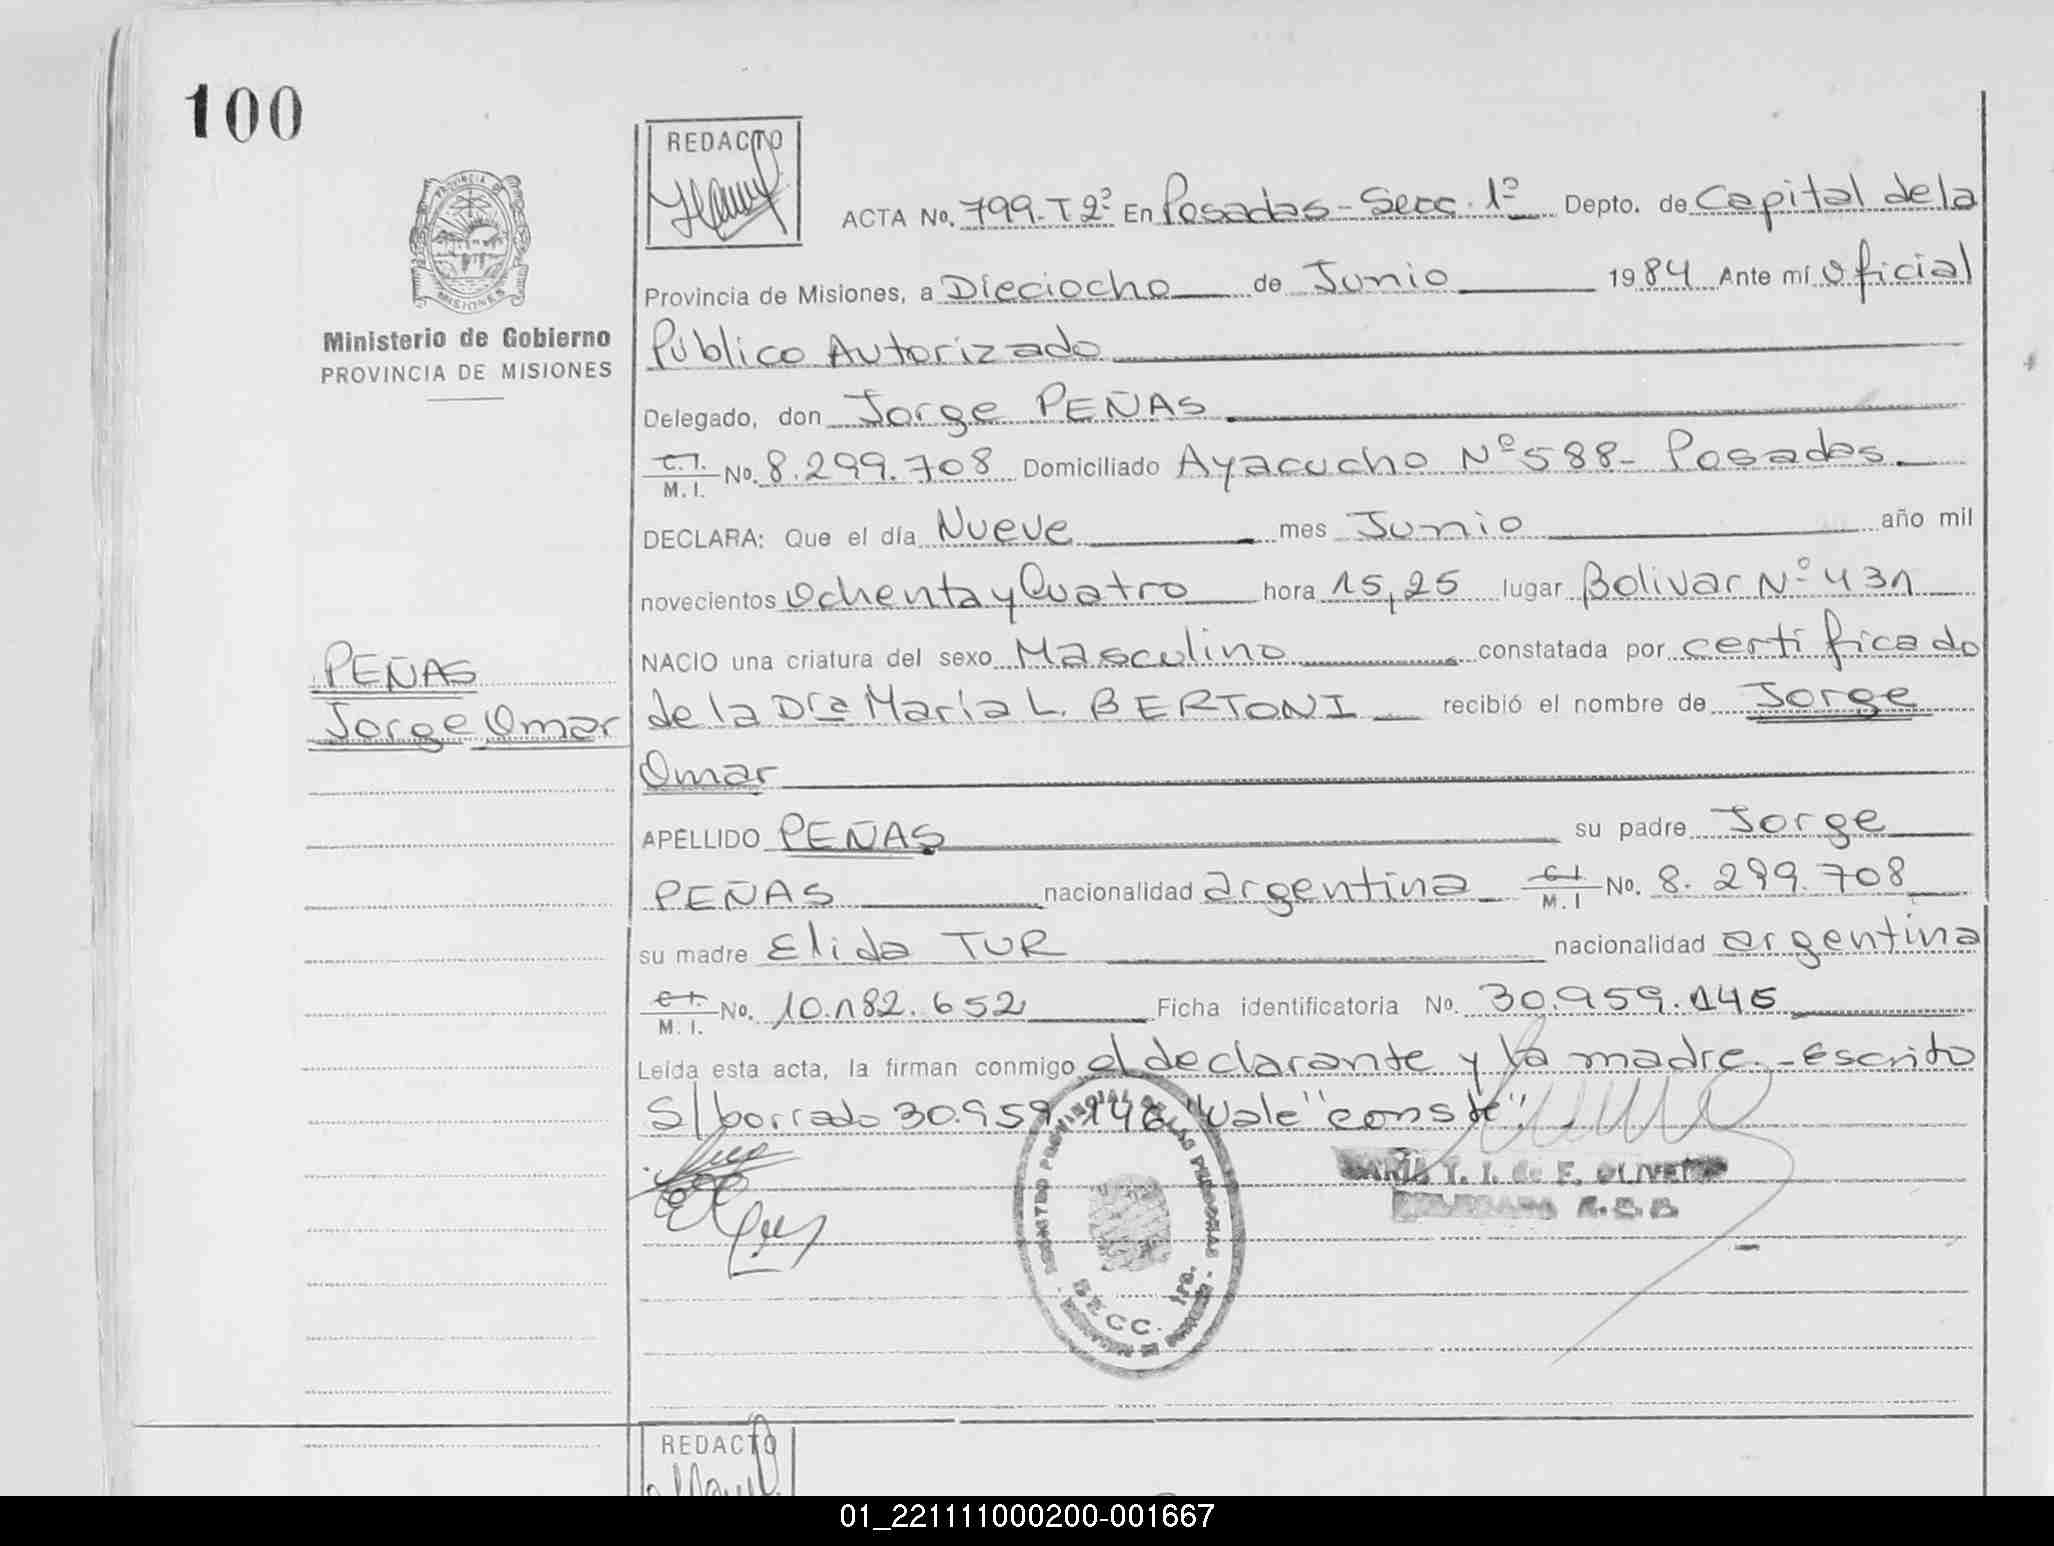 100
REDACTO
ACTA No. 799-T2º En Posadas - Secc. 1º Depto. de Capital de la
PROVINCIA DE
MISIONES
Provincia de Misiones, a Dieciocho de Junio 1984 Ante mí Oficial
Ministerio de Gobierno
PROVINCIA DE MISIONES
Público Autorizado
Delegado, don Jorge PEÑAS
C.I.
M. I. No. 8.299.708 Domiciliado Ayacucho Nº 588- Posadas.
DECLARA: Que el día Nueve mes Junio año mil
novecientos Ochenta y Cuatro hora 15,25 lugar Bolivar Nº 431
NACIO una criatura del sexo Masculino constatada por certificado
PEÑAS
Jorge Omar
de la Dra María L. BERTONI recibió el nombre de Jorge
Omar
APELLIDO PEÑAS su padre Jorge
PEÑAS nacionalidad argentina C I
M. I No. 8. 299. 708
su madre Elida TUR nacionalidad argentina
C I.
M. I. No. 10.182.652 Ficha identificatoria No. 30.959.146
Leída esta acta, la firman conmigo el declarante y la madre.- Escrito
S/borrado 30.959.146 "Vale" "conste".
MARIA Y. I. de F. OLIVETTI
REGISTRO PROVINCIAL DE LAS PERSONAS
SECC. 1ra.
REDACTO
01_221111000200-001667